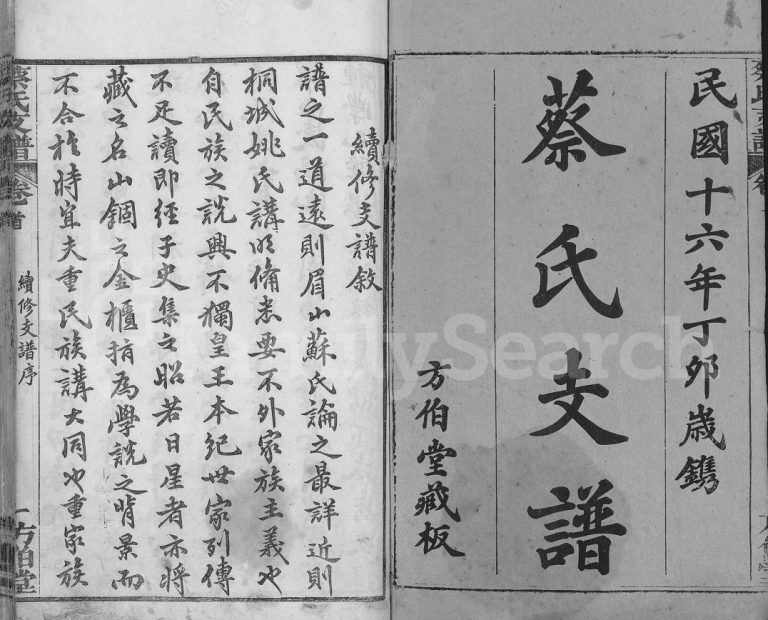 民國十六年丁卯歲鐫
蔡氏支譜
方伯堂藏板
續修支譜敘
譜之一道遠則眉山蘇氏論之最詳近則
桐城姚氏講明備悉要不外家族主義也
自民族之說興不獨皇王本紀世家列傳
不足讀即經子史集之昭若日星者亦將
藏之名山錮之金櫃指為學說之背景而
不合於時宜夫重民族講大同也重家族
蔡氏支譜
卷首
續修支譜序
一
方伯堂
FamilySearch